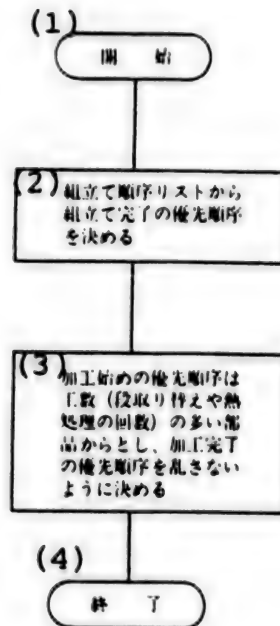 (1)
開 始
(2)
組立て順序リストから
組立て完了の優先順序
を決める
(3)
加工始めの優先順序は
工数(段取り替えや熱
処理の回数)の多い部
品からとし、加工完了
の優先順序を乱さない
ように決める
(4)
終 了